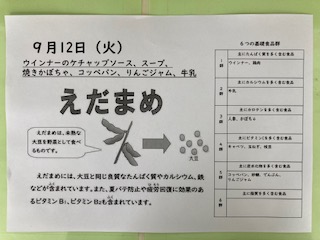 9月12日（火）
ウインナーのケチャップソース、スープ、
焼きかぼちゃ、コッペパン、りんごジャム、牛乳
えだまめ
えだまめは、未熟な
大豆を野菜として食べ
るものです。
大豆
えだまめには、大豆と同じ良質なたんぱく質やカルシウム、鉄
などが含まれています。また、夏バテ防止や疲労回復に効果のあ
るビタミンB₁、ビタミンB₂も含まれています。
6つの基礎食品群
主にたんぱく質を多く含む食品
1群
ウインナー、鶏肉
主にカルシウムを多く含む食品
2群
牛乳
主にカロテンを多く含む食品
3群
人参、かぼちゃ
主にビタミンCを多く含む食品
4群
キャベツ、玉ねぎ、枝豆
主に炭水化物を多く含む食品
5群
コッペパン、砂糖、でんぷん、
りんごジャム
主に脂質を多く含む食品
6群